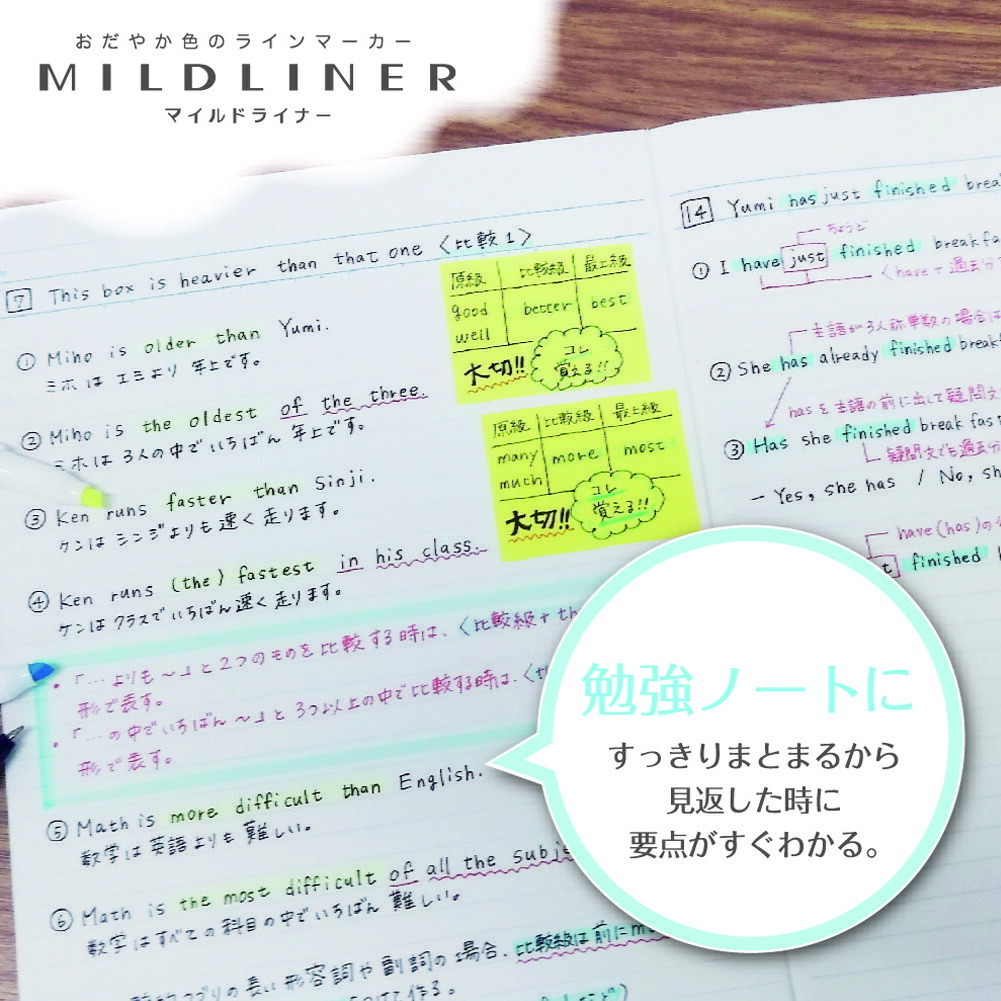 おだやか色のラインマーカー
MILDLINER
マイルドライナー
7 This box is heavier than that one 〈比較1〉
① Miho is older than Yumi.
ミホは エミより 年上です。
② Miho is the oldest of the three.
ミホは 3人の中でいちばん 年上です。
③ Ken runs faster than Sinji.
ケンは シンジよりも 速く 走ります。
④ Ken runs (the) fastest in his class.
ケンは クラスでいちばん速く 走ります。
・「…よりも〜」と2つのものを比較する時は、〈比較級+th
形で表す。
・「…の中でいちばん〜」と3つ以上の中で比較する時は、〈th
形で表す。
⑤ Math is more difficult than English.
数学は英語よりも 難しい。
⑥ Math is the most difficult of all the subje
数学はすべての科目の中でいちばん 難しい。
の長い形容詞や副詞の場合、比較級は前にm
て作る。
原級 比較級 最上級
good better best
well
大切!! コレ
覚える!!
原級 比較級 最上級
many more most
much
大切!! コレ
覚える!!
14 Yumi has just finished brea
ちょうど
① I have just finished breakfa
〈have+過去分
主語が3人称単数の場合は
② She has already finished break
hasを主語の前に出して疑問文
③ Has she finished breakfast
疑問文でも過去分
– Yes, she has / No, sh
have(has)の
finished
勉強ノートに
すっきりまとまるから
見返した時に
要点がすぐわかる。